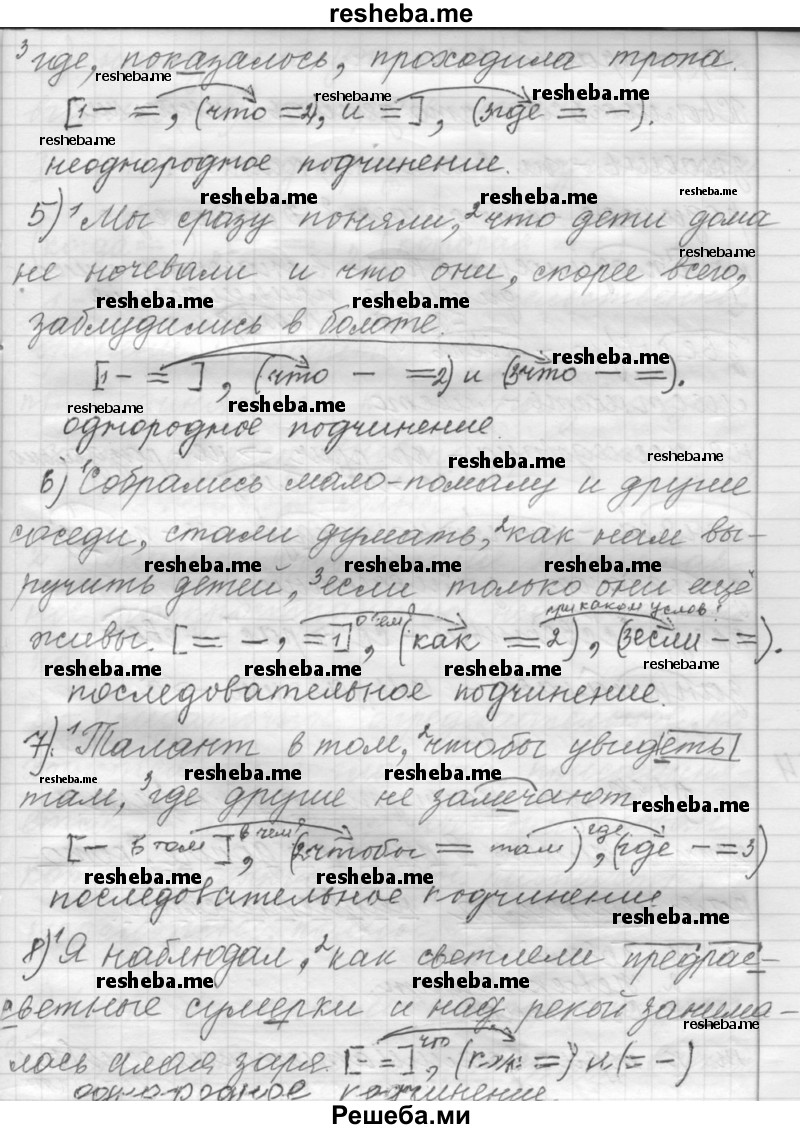 resheba.me
³где, показалось, проходила тропа.
[1 – =, (что =2), и =], (3где = –).
неоднородное подчинение.
5) ¹Мы сразу поняли, ²что дети дома
не ночевали и что они, скорее всего,
заблудились в болоте.
[1 – = ], (что – =2) и (3что – =).
однородное подчинение
6) ¹Собрались мало-помалу и другие
соседи, стали думать, ²как нам вы-
ручить детей, ³если только они ещё
живы. [= –, =1], о чём? (как =2), при каком услов? (3если – =).
последовательное подчинение.
7) ¹Талант в том, ²чтобы увидеть
там, ³где другие не замечают
[– в том ], в чём? (2чтобы = там), где (где – =3)
последовательное подчинение
8) ¹Я наблюдал, ²как светлели предрас-
светные сумерки и над рекой занима-
лась алая заря. [– =], что (как – =) и (= –)
однородное подчинение.
Решеба.ми